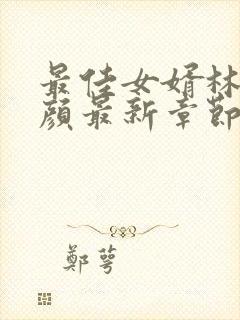 最佳女婿林
顏最新章節
鄭萼